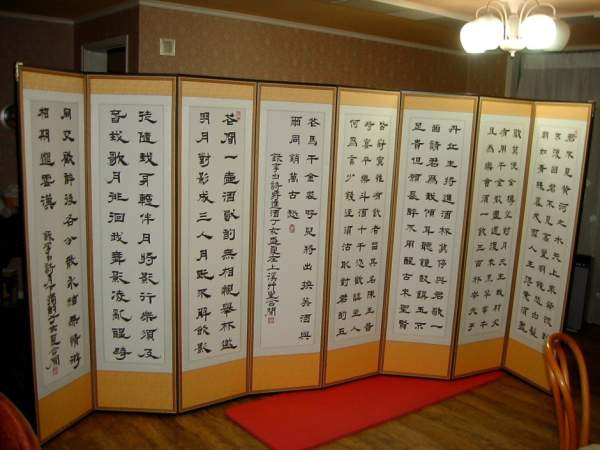 君不見黃河之水天上來奔流到
海不復回君不見高堂明鏡悲白髮
朝如青絲暮成雪人生得意須盡
歡莫使金樽空對月天生我材必
有用千金散盡還復來烹羊宰牛
且為樂會須一飲三百杯岑夫子
丹丘生將進酒杯莫停與君歌一
曲請君為我傾耳聽鐘鼓饌玉不
足貴但願長醉不用醒古來聖賢
皆寂寞惟有飲者留其名陳王昔
時宴平樂斗酒十千恣歡謔主人
何為言少錢徑須沽取對君酌五
花馬千金裘呼兒將出換美酒與
爾同銷萬古愁
錄李白詩將進酒丁亥盛夏
花間一壺酒獨酌無相親舉杯邀
明月對影成三人月既不解飲影
徒隨我身暫伴月將影行樂須及
春我歌月徘徊我舞影凌亂醒時
同交歡醉後各分散永結無情遊
相期邈雲漢
錄李白詩月下獨酌丁亥夏